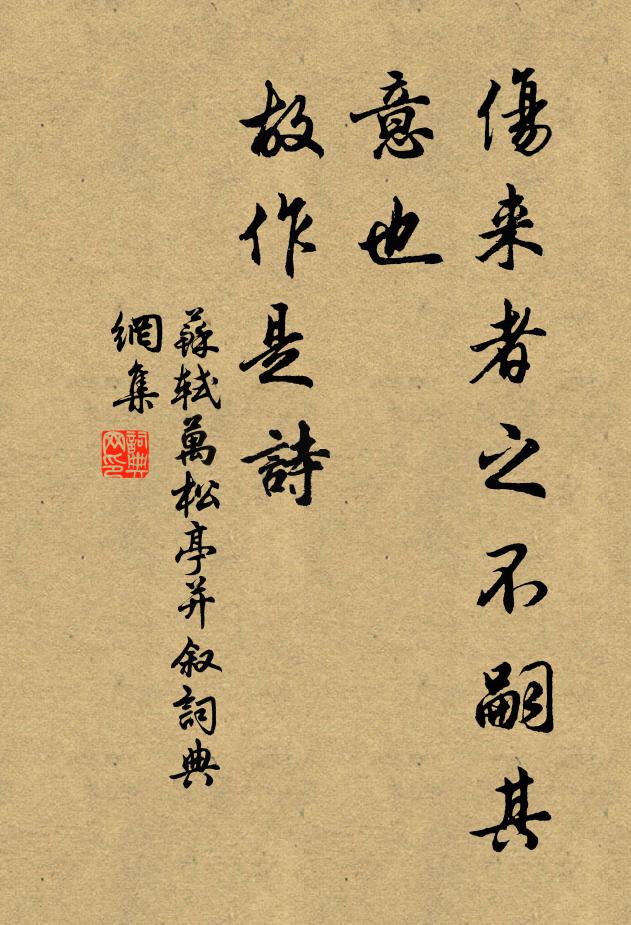 傷来者之不嗣其
意也
故作是詩
蘇軾萬松亭并敘詞典
網集
詞典
网印